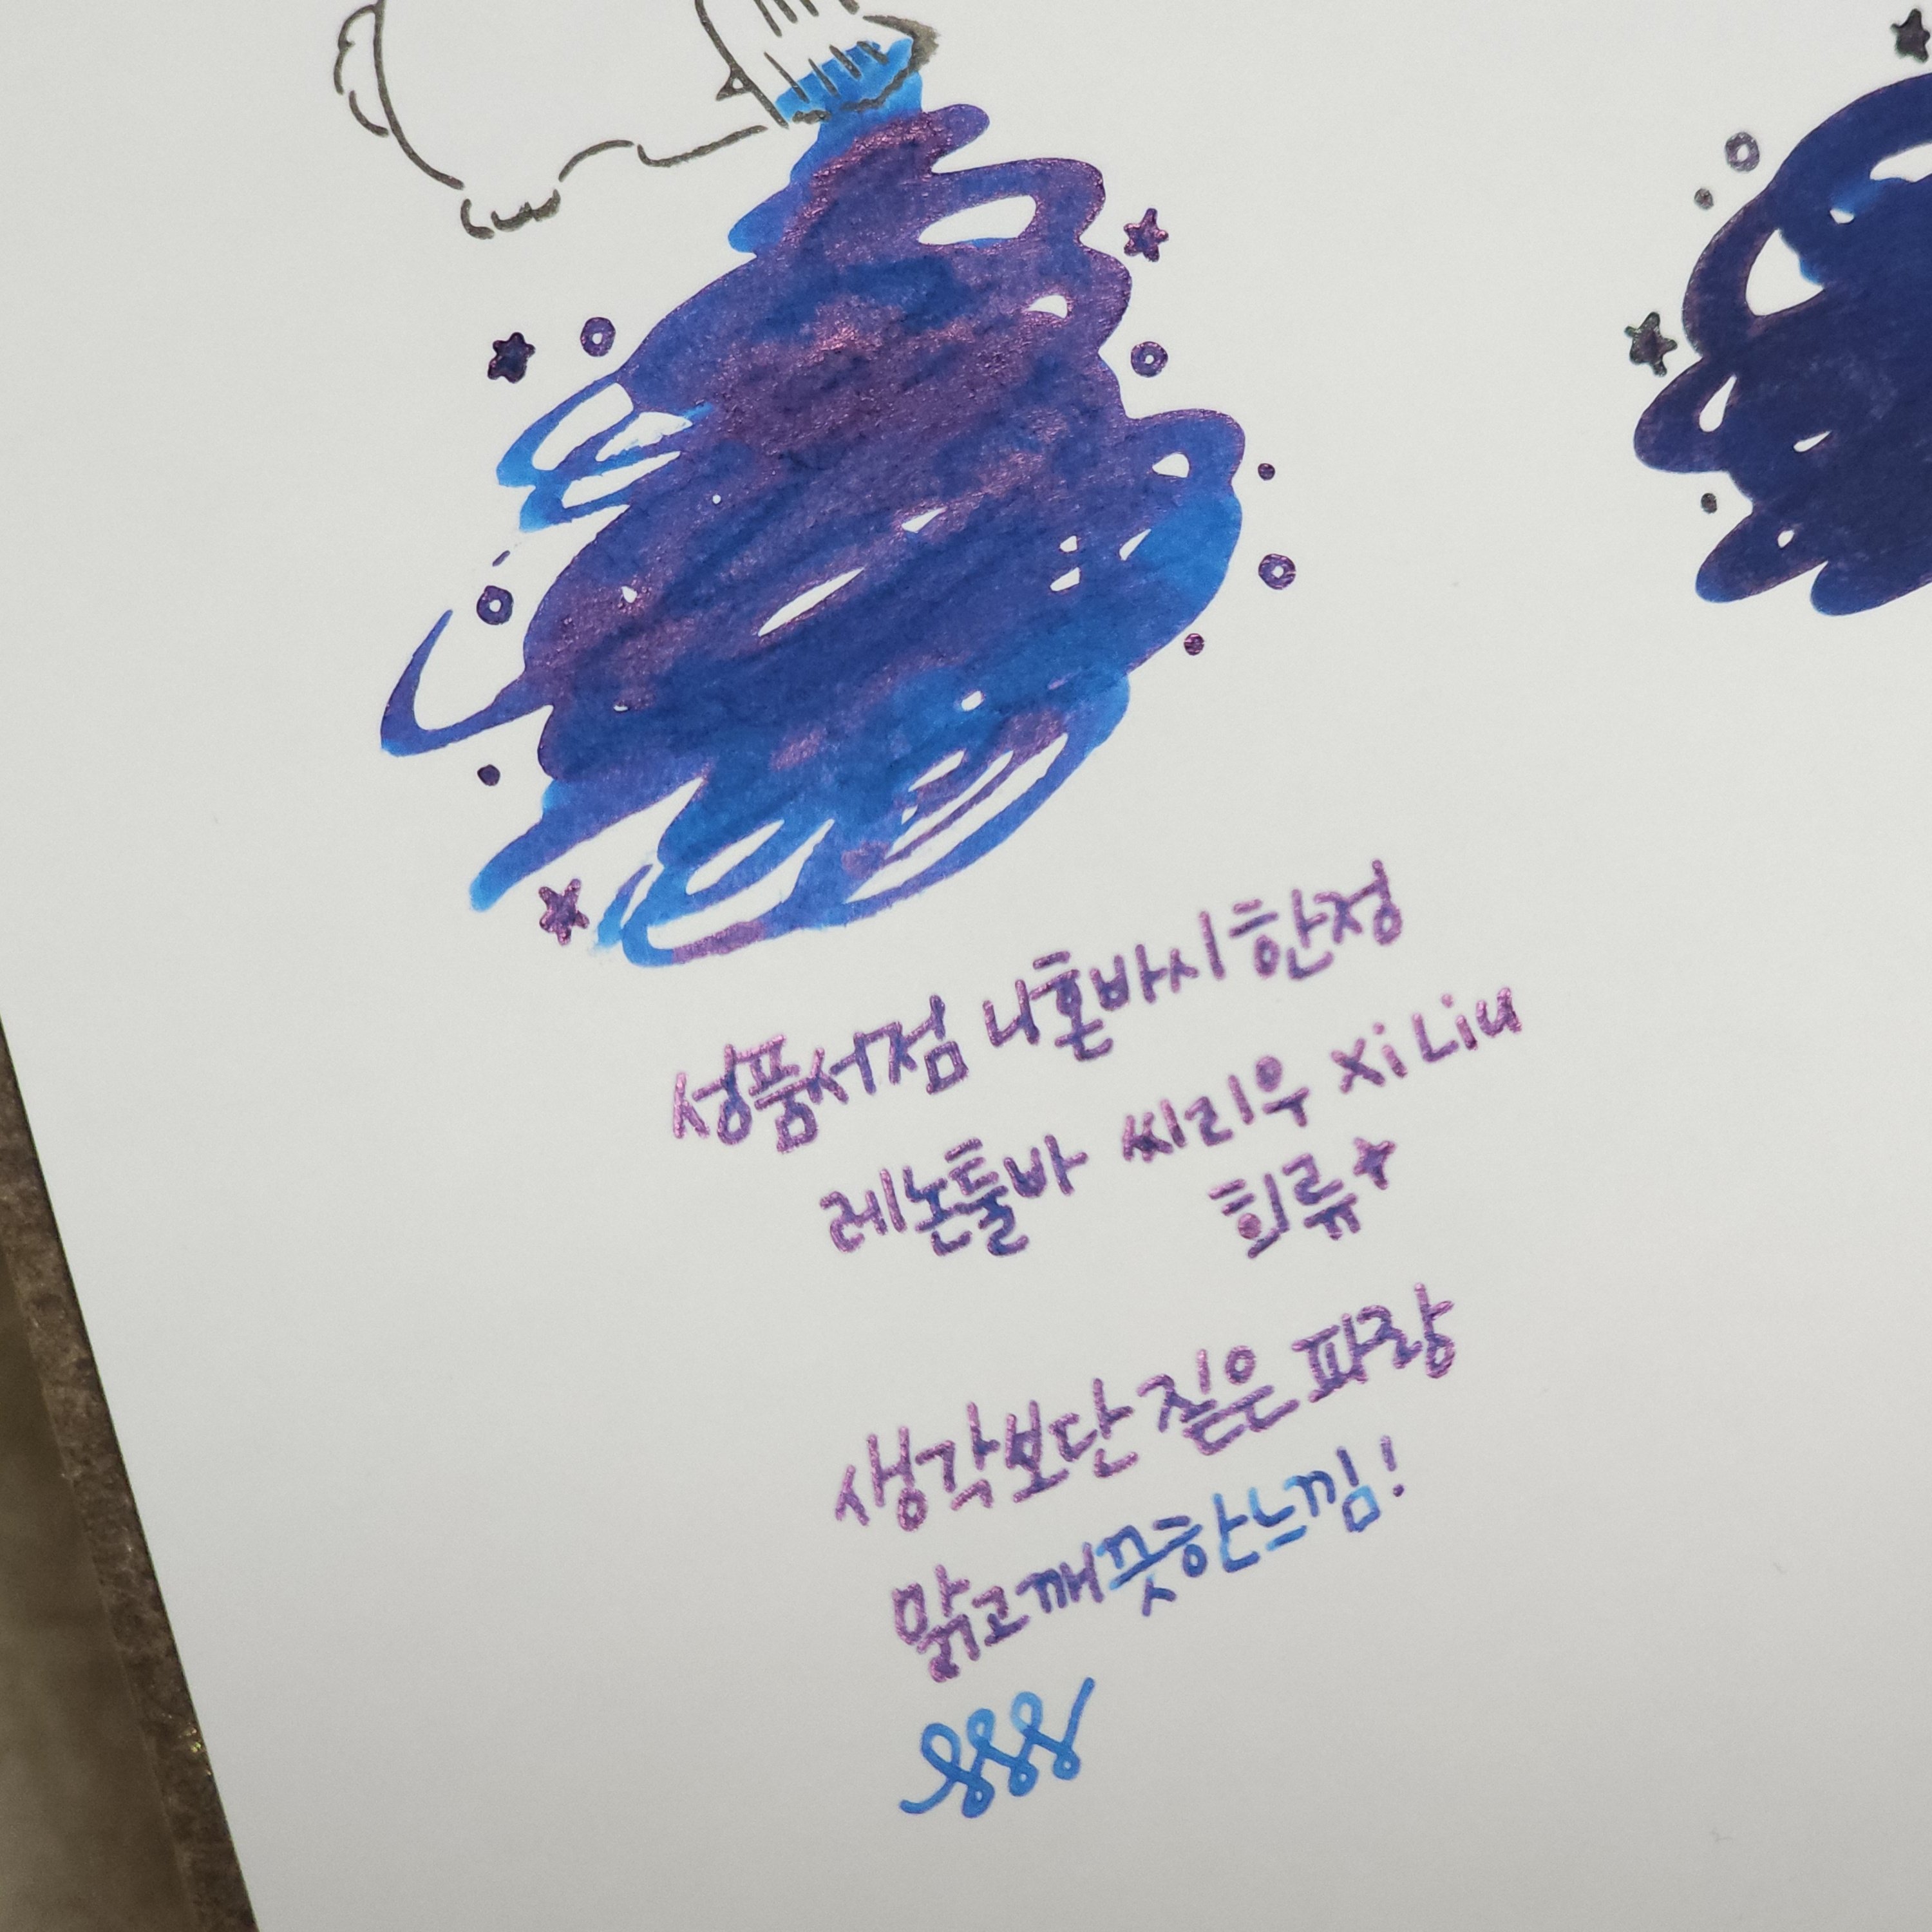 성품서점 니혼바시 한정
레논툴바 씨리우 Xi Liu
희류
생각보단 짙은 파랑
맑고 깨끗한 느낌!